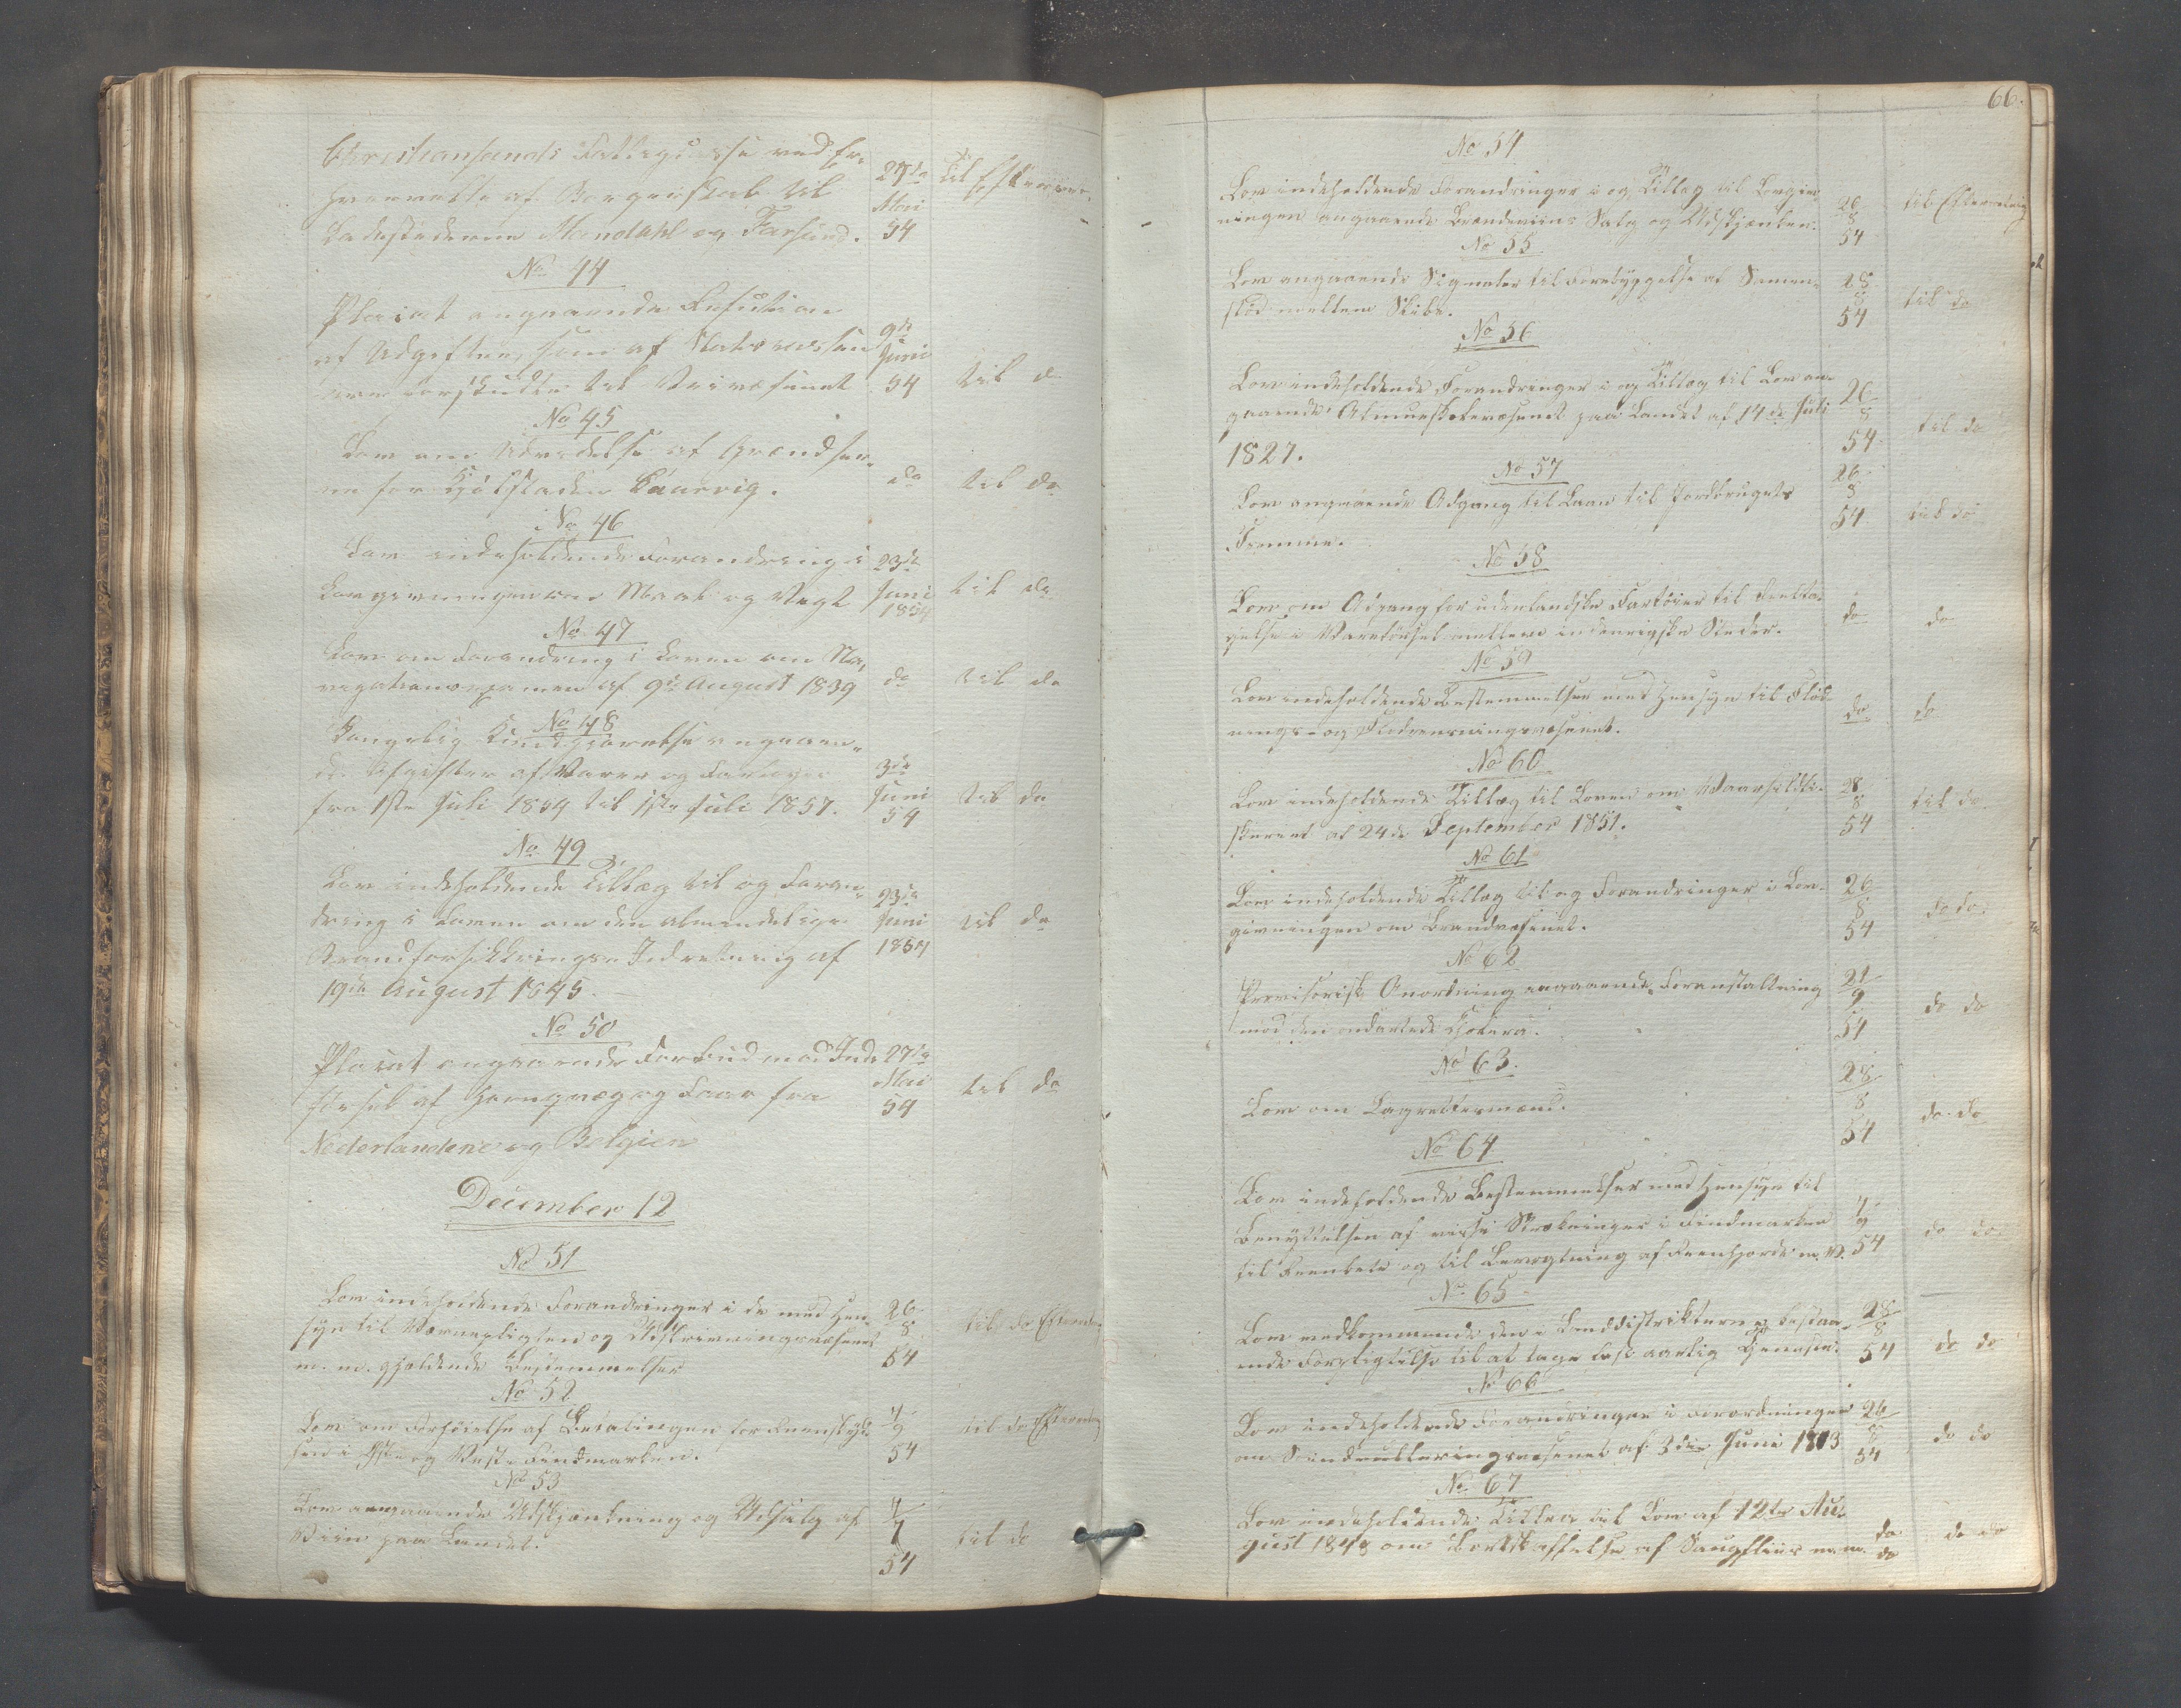 Christiansands Fattigcasse ved Er-
hvervelse af Borgerskab til
Ladestederne Mandahl og Farsund.
27de
Mai
54
til Efterretn.
No 44
Placat angaaende Refusion
af Udgifter, som af Statscassen
ere forskudte til
9de
Juni
54
til do
No 45
Lov om Udvidelse af Grændser-
ne for Kjøbstaden Laurvig.
do
til do
No 46
Lov indeholdende Forandring i
Lovgivningen om Maal og Vægt
23de
Juni
1854
til do
No 47
Lov om Forandring i Loven om Na-
vigationsexamen af 9de August 1839
do
til do
No 48
Kongelig Kundgjørelse angaaen-
de Afgifter af Varer og Fartøier
fra 1ste Juli 1854 til 1ste Juli 1857.
3de
Juni
54
til do
No 49
Lov indeholdende Tillæg til og Foran-
dring i Loven om den almindelige
Brandforsikkrings-Indretning af
19de August 1845.
23de
Juni
1854
til do
No 50
Placat angaaende Forbud mod Ind-
førsel af Hornqvæg og Faar fra
Nederlandene og Belgien
27de
Mai
54
til do
December 12
No 51
Lov indeholdende Forandringer i de med Hen-
syn til Værnepligten og Udskrivningsvæsenet
m. m. gjældende Bestemmelser
26
8
54
til do Efterretn.
No 52
Lov om Forhøielse af Betalingen for Reenskyds-
hold i Øst- og Vest-Findmarken.
7
9
54
til do Efterretn
No 53
Lov angaaende Udskjænkning og Udsalg af
Viin paa Landet.
54
til do
66.
No 54
Lov indeholdende Forandringer i og Tillæg til Lovgiv-
ningen angaaende Brændeviins Salg og Udskjænken.
26
8
54
til Efterretning
No 55
Lov angaaende Signaler til Forebyggelse af Sammen-
stød mellem Skibe.
28
8
54
til do
No 56
Lov indeholdende Forandringer i og Tillæg til Lov an-
gaaende Almueskolevæsenet paa Landet af 14de Juli
1827.
26
8
54
til do
No 57
Lov angaaende Adgang til Laan til Jordbrugets
Fremme.
26
8
54
til do
No 58
Lov om Adgang for udenlandske Fartøier til Deelta-
gelse i Vareførsel mellem indenrigske Steder.
do
do
No 59
Lov indeholdende Bestemmelser med Hensyn til Flød-
nings- og
do
do
No 60
Lov indeholdende Tillæg til Loven om Vaarsildfi-
skeriet af 24de September 1851.
28
8
54
til do.
No 61
Lov indeholdende Tillæg til og Forandringer i Lov-
givningen om Brandvæsenet.
26
8
54
do do.
No 62
Provisorisk Anordning angaaende Foranstaltning
mod den ondartede Cholera.
21
9
54
do do
No 63.
Lov om Lagrettesmænd.
28
8
54
do. do
No 64
Lov indeholdende Bestemmelser med Hensyn til
Benyttelsen af visse Strækninger i Findmarken
til Reenbete og til Bevogtning af Reenhjorde m. V.
7
9
54
do do
No 65
Lov vedkommende den i Landdistrikterne bestaa-
ende Forpligtelse til at tage fast aarlig Tjeneste.
28
8
54
do do
No 66
Lov indeholdende Forandringer i Forordningen
om af 3die Juni 1813
26
8
54
do do
No 67
Lov indeholdende Tillæg til Lov af 12te Au-
gust 1848 om Bortskaffelse af Saugfliis m.m.
do
do
do do